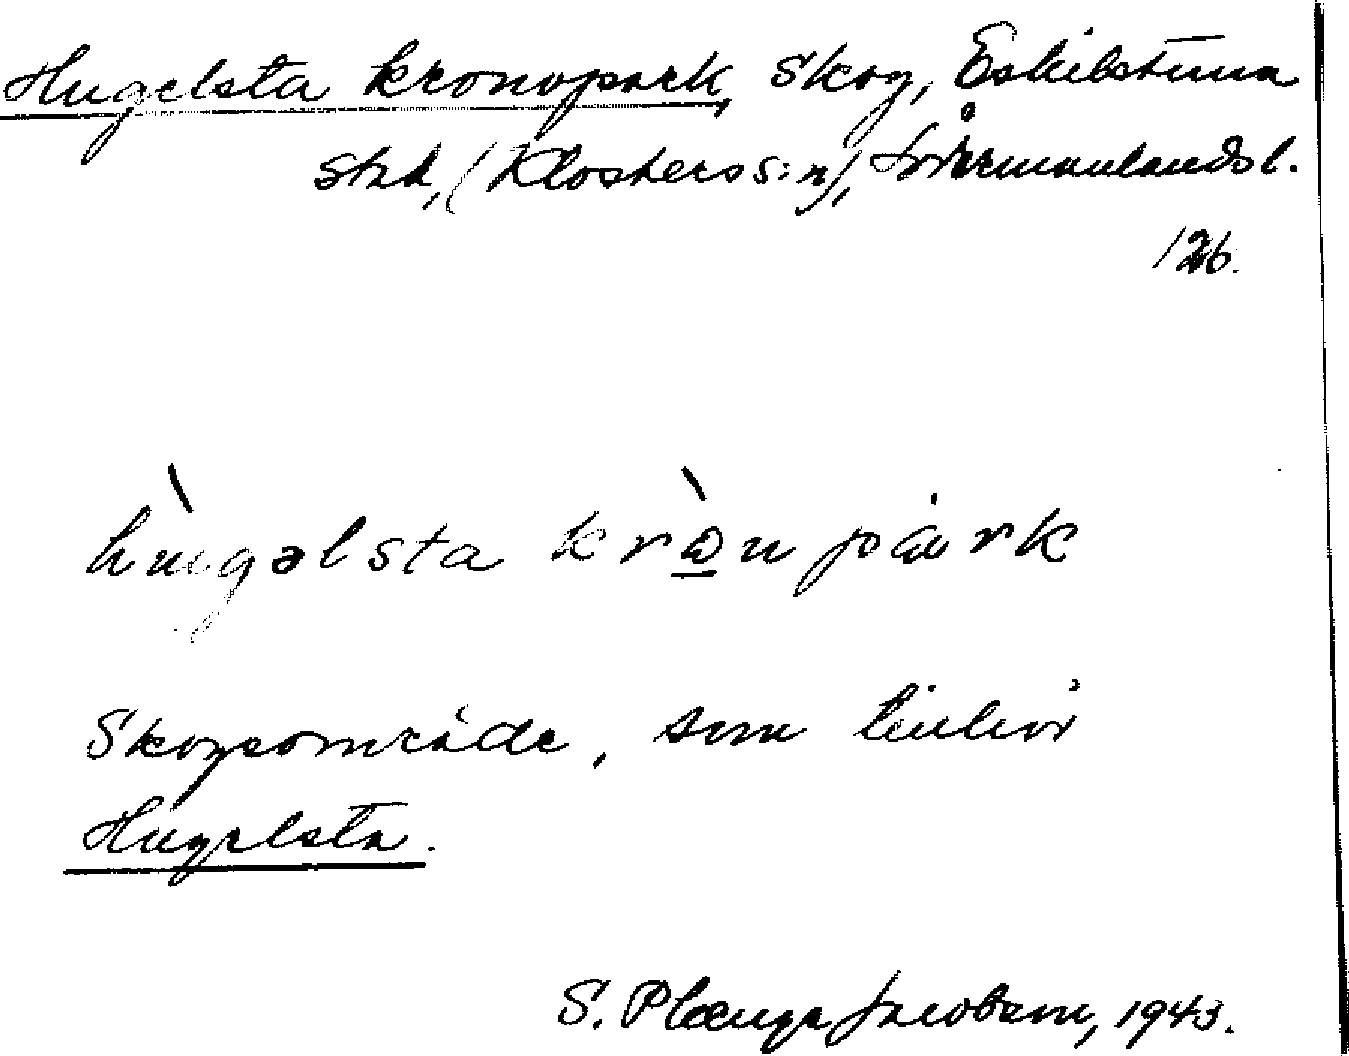 Hugelsta kronopark, Skog, Eskilstuna
stad, (Klosters s:n), Södermanlands l.
126.
hùgəlsta krò̱npark
Skogsområde, som tillhör
Hugelsta.
S. Plænge Jacobson, 1943.